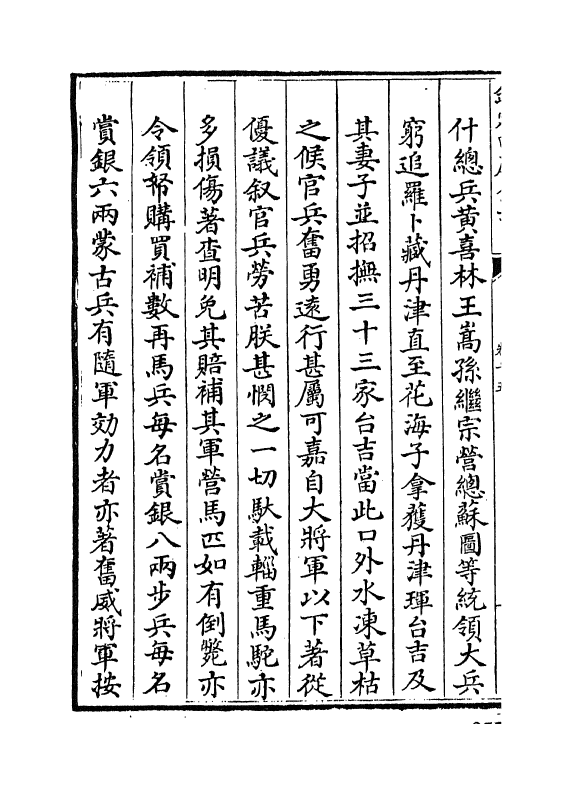 什總兵黄喜林王嵩孫繼宗營總蘇圖等統領大兵
窮追羅卜藏丹津直至花海子拿獲丹津琿台吉及
其妻子並招撫三十三家台吉當此口外水凍草枯
之候官兵奮勇遠行甚屬可嘉自大將軍以下著從
優議叙官兵勞苦朕甚憫之一切馱載輜重馬駝亦
多損傷著查明免其賠補其軍營馬匹如有倒斃亦
令領帑購買補數再馬兵每名賞銀八兩步兵每名
賞銀六兩蒙古兵有隨軍効力者亦著奮威將軍按